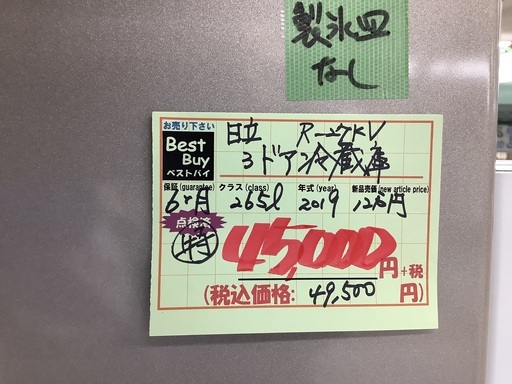 製氷皿
なし
お売り下さい
Best Buy
ベストバイ
日立 R-27KV
3ドア冷蔵庫
保証(guarantee) クラス(class) 年式(year) 新品売価(new article price)
6ヶ月 265l 2019 12.8万円
点検済
特
45,000円+税
(税込価格: 49,500円)